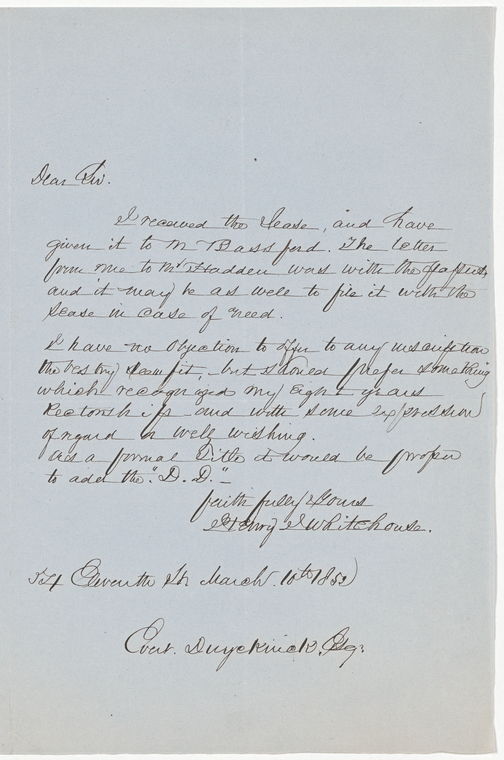 Dear Sir.
I received the Lease, and have
given it to Mr Bassford. The letter
from me to Mr Hadden was with the papers
and it may be as well to file it with the
Lease in case of need.
I have no objection to offer to any inscription
the Vestry deem fit, but should prefer something
which recognized my eight years
Rectorship and with some expression
of regard or well wishing.
As a formal title it would be proper
to add the "D. D."
faithfully Yours
Henry J Whitehouse.
Eleventh St. March. 10th 1852
Evert. Duyckinck. Esq.